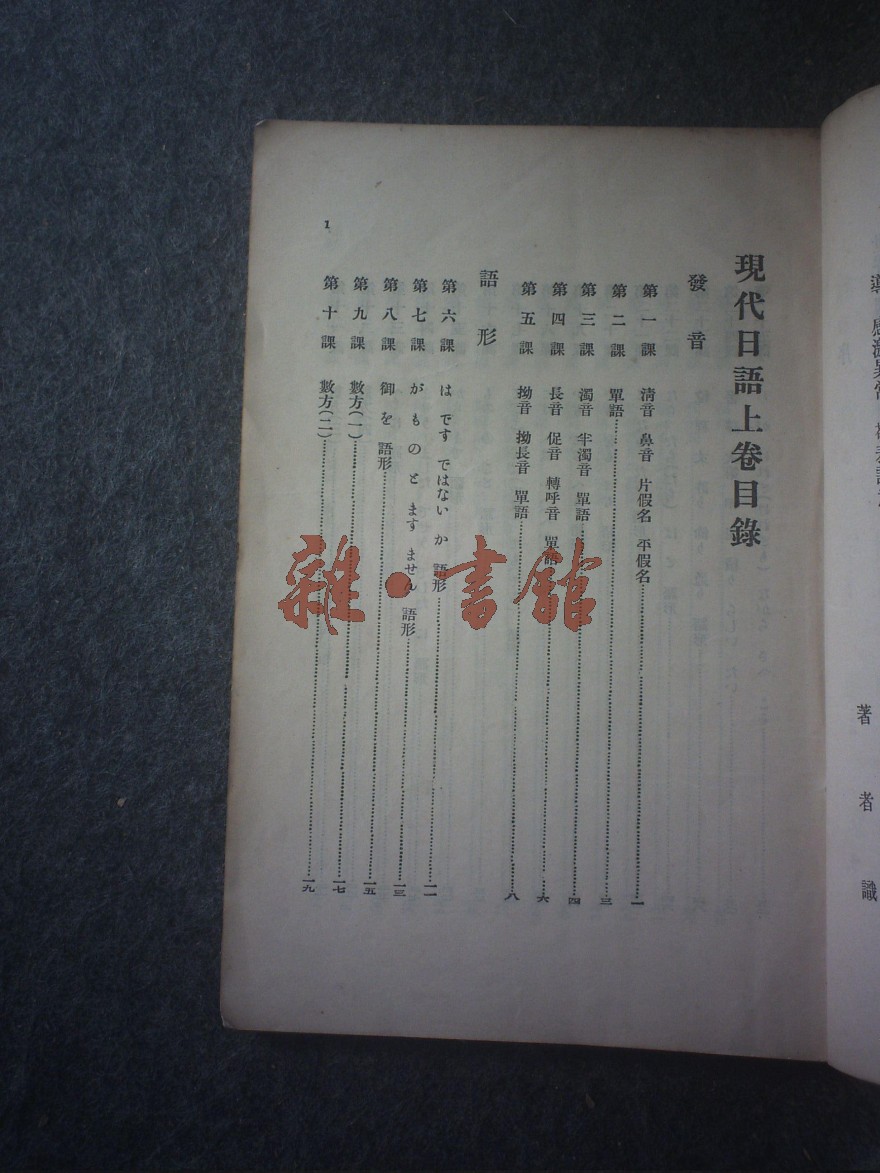 著者識
現代日語上卷目錄
發音
第一課 清音 鼻音 片假名 平假名……一
第二課 單語……三
第三課 濁音 半濁音 單語……四
第四課 長音 促音 轉呼音 單語……六
第五課 拗音 拗長音 單語……八
語形
第六課 は です ではない か 語形……一一
第七課 が も の と ます ません 語形……一三
第八課 御 を 語形……一五
第九課 數方(一)……一七
第十課 數方(二)……一九
1
雜·書館